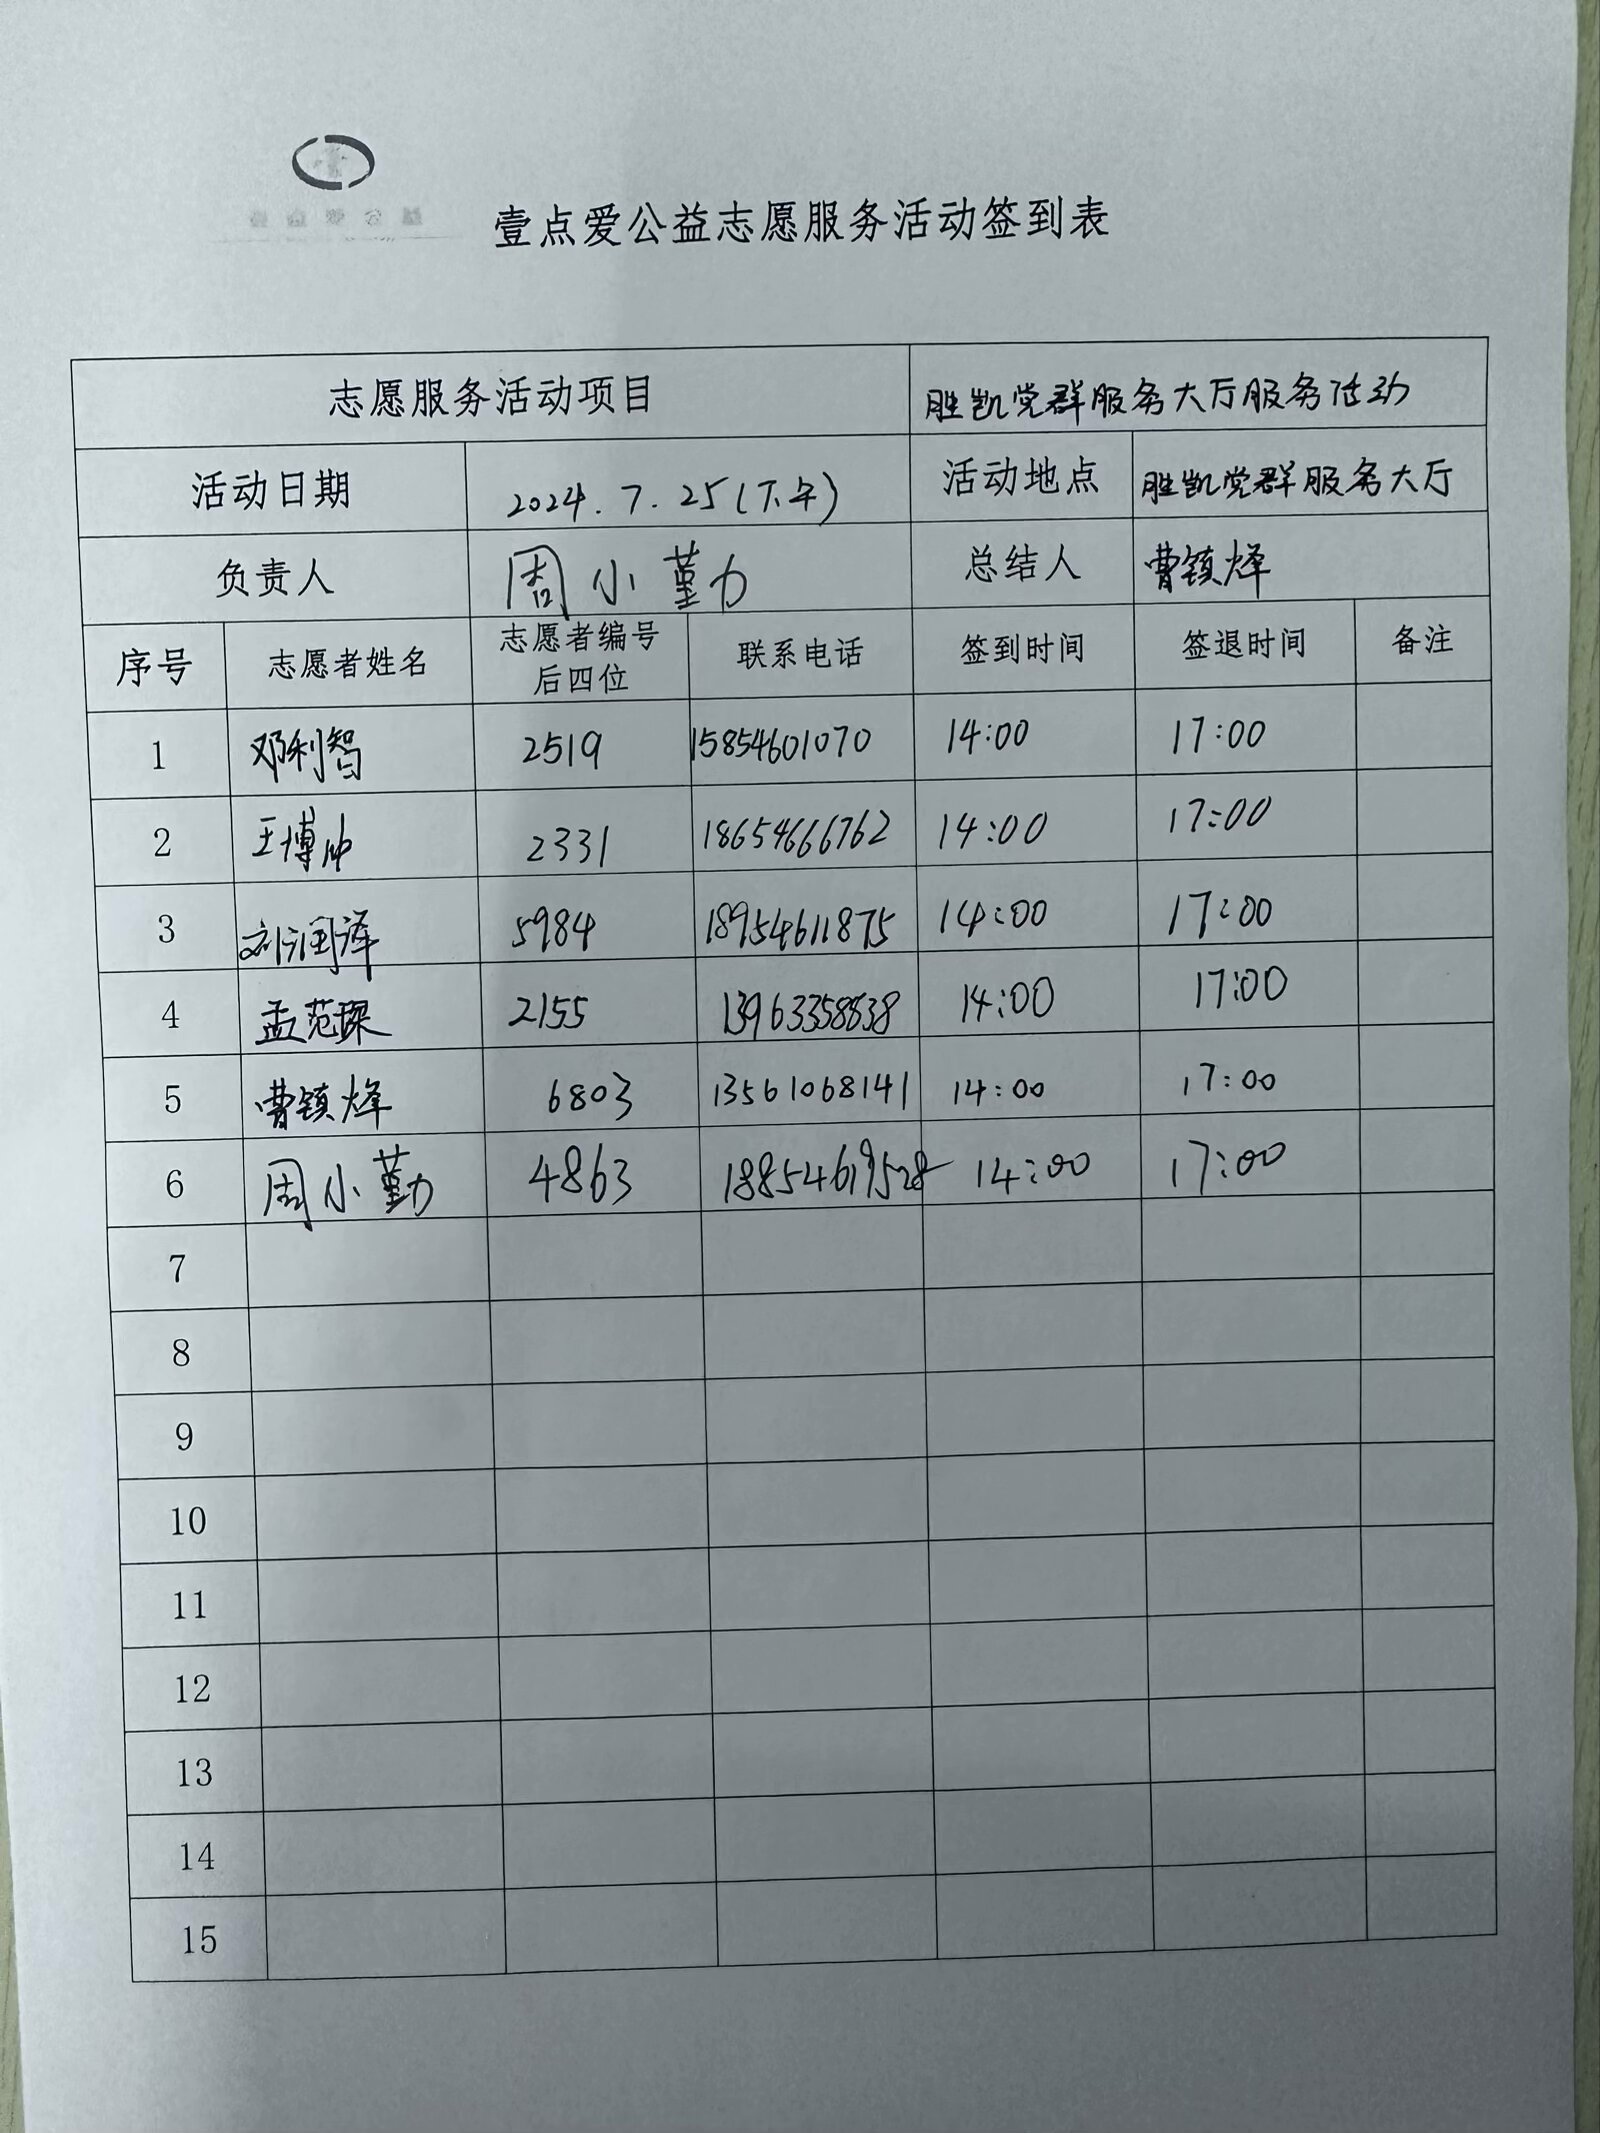 壹点爱公益志愿服务活动签到表
志愿服务活动项目 胜凯党群服务大厅服务活动
活动日期 2024.7.25(下午) 活动地点 胜凯党群服务大厅
负责人 周小勤 总结人 曹镇烽
序号 志愿者姓名 志愿者编号后四位 联系电话 签到时间 签退时间 备注
1 邓利智 2519 15854601070 14:00 17:00
2 王博帅 2331 18654666762 14:00 17:00
3 刘润泽 5984 18954611875 14:00 17:00
4 孟范琛 2155 13963358838 14:00 17:00
5 曹镇烽 6803 13561068141 14:00 17:00
6 周小勤 4863 18854619528 14:00 17:00
7
8
9
10
11
12
13
14
15